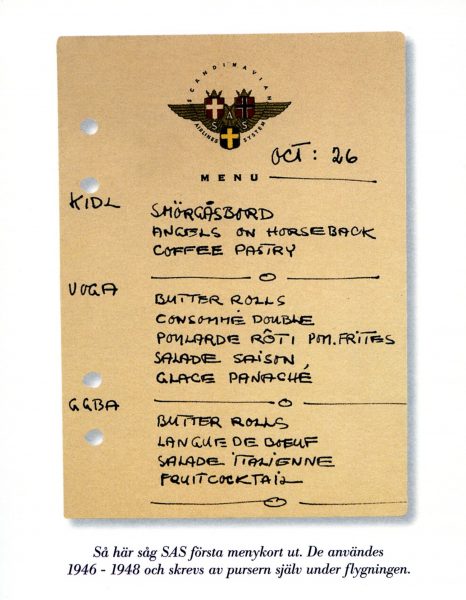 SCANDINAVIAN
SAS
AIRLINES SYSTEM
OCT: 26
MENU
KIDL
SMÖRGÅSBORD
ANGELS ON HORSEBACK
COFFEE PASTRY
VOGA
BUTTER ROLLS
CONSOMMÉ DOUBLE
POULARDE RÔTI POM. FRITES
SALADE SAISON,
GLACE PANACHÉ
GGBA
BUTTER ROLLS
LANGUE DE BOEUF
SALADE ITALIENNE
FRUITCOCKTAIL
Så här såg SAS första menykort ut. De användes
1946 - 1948 och skrevs av pursern själv under flygningen.